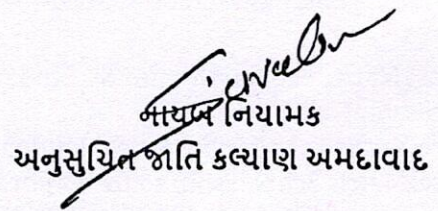 નાયબ નિયામક
અનુસુચિત જાતિ કલ્યાણ અમદાવાદ